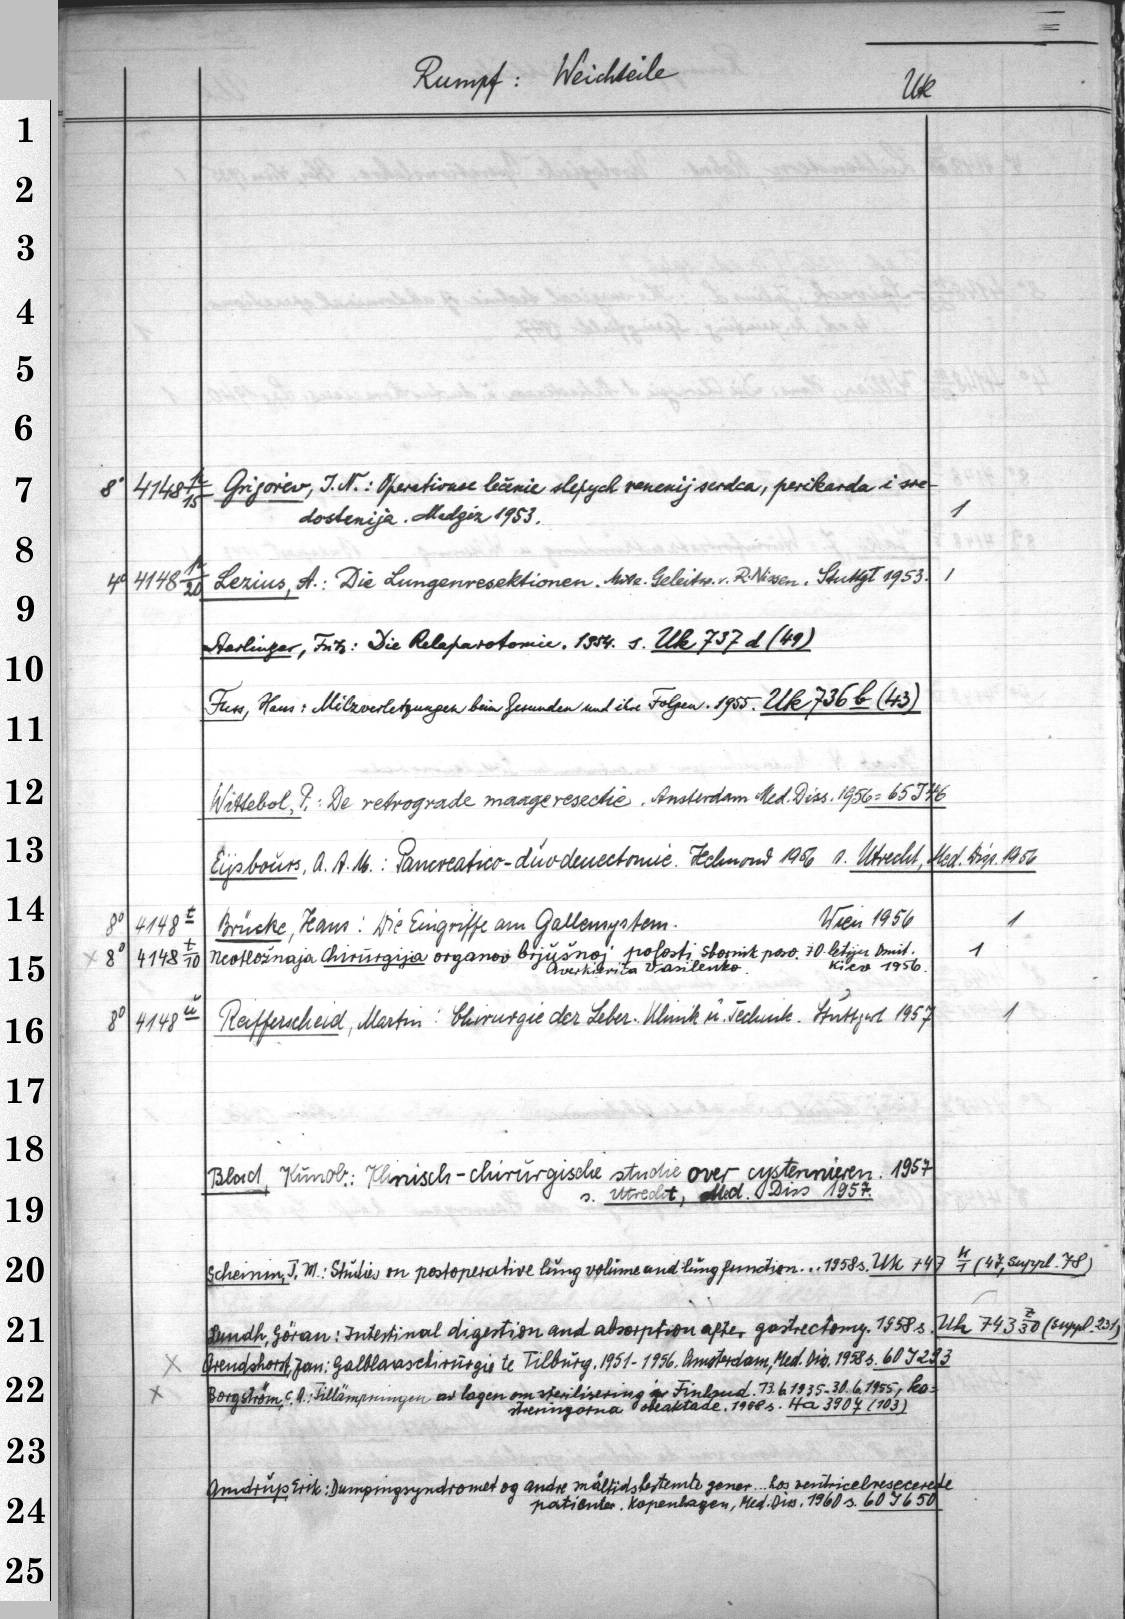 Rumpf: Weichteile Uk
1
2
3
4
5
6
7 8° 4148 n/15 Grigorév, I. N.: Operativnoe lečenie slepych ranenij serdca, perikarda i sre-
dostenija. Medgiz 1953. 1
8
4° 4148 n/20 Lezius, A.: Die Lungenresektionen. Geleitw. v. R. Nissen. Stuttgt 1953. 1
9
Starlinger, Fritz: Die Relaparotomie. 1954. s. Uk 737 d (49)
10
Fuss, Hans: Milzverletzungen beim Gesunden und ihre Folgen. 1955. Uk 736 b (43)
11
12 Wittebol, P.: De retrograde maagresectie. Amsterdam Med. Diss. 1956 = 65 J 46
13 Eijsbouts, A. A. M.: Pancreatico-duodenectomie. Helmond 1956 s. Utrecht, Med. Diss. 1956
14 8° 4148 t Brücke, Hans: Die Eingriffe am Gallensystem. Wien 1956 1
15 × 8° 4148 t/10 Neotložnaja Chirurgija organov brjušnoj polosti. Sbornik posv. 70-letiju Dmit.
Averkieviča Vasilenko. Kiev 1956. 1
16 8° 4148 u Reifferscheid, Martin: Chirurgie der Leber. Klinik u. Technik. Stuttgart 1957 1
17
18
Blad, : Klinisch-chirurgische studie over cystennieren. 1957
19 s. Utrecht, Med. Diss 1957.
20 Scheinin, T. M.: Studies on postoperative lung volume and lung function... 1958 s. Uk 747 (47, Suppl. 78)
21 Lundh, Göran: Intestinal digestion and absorption after gastrectomy. 1958 s. Uk 743 z/30 (Suppl. 231)
× Arendshorst, Jan: Galblaaschirurgie te Tilburg. 1951-1956. Amsterdam, Med. Dis. 1958 s. 60 J 293
22 × Borgström, C. A.: Tillämpningen av lagen om sterilisering i Finland. 13.6.1935-30.6.1955, ka=
streringarna obeaktade. 1958 s. Ha 3907 (103)
23
Amdrup, Erik: Dumpingsyndromet og andre måltidsbestemte gener... hos ventrikelresecerede
24 patienter. Kopenhagen, Med. Diss. 1960 s. 60 J 650
25